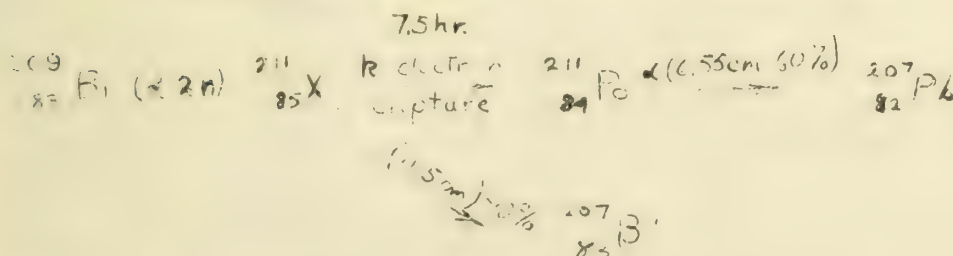 7.5 hr.
209 83 Bi (α 2n) 211 85 X K electron capture 211 84 Po α (6.55cm 60%) 207 82 Pb
5cm) 207 83 Bi